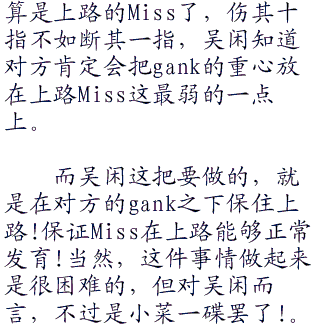 算是上路的Miss了，伤其十
指不如断其一指，吴闲知道
对方肯定会把gank的重心放
在上路Miss这最弱的一点
上。
而吴闲这把要做的，就
是在对方的gank之下保住上
路!保证Miss在上路能够正常
发育!当然，这件事情做起来
是很困难的，但对吴闲而
言，不过是小菜一碟罢了!。